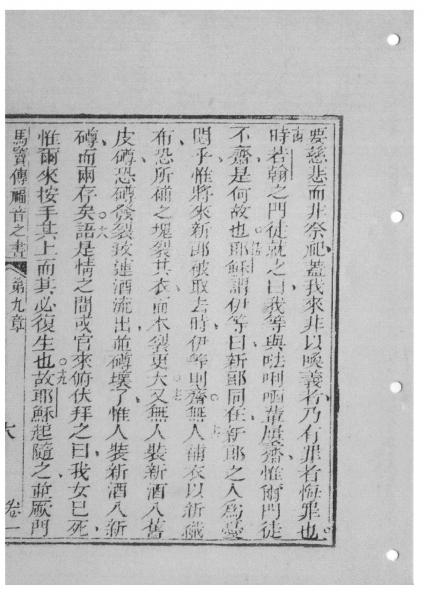 要慈悲而非祭祀蓋我來非以喚義者乃有罪者悔罪也
十四
時若翰之門徒就之曰我等與㗑唎㘔輩屢齋惟爾門徒
不齋是何故也十五耶穌謂伊等曰新郎同在新郎之人為憂
悶乎惟將來新郎被取去時伊等則齋十六無人補衣以新織
布恐所補之塊裂其衣而本裂更大十七又無人裝新酒入舊
皮罇恐罇發裂致連酒流出並罇壞了惟人裝新酒入新
罇而兩存矣十八語是情之間或官來俯伏拜之曰我女已死
惟爾來按手其上而其必復生也十九故耶穌起隨之並厥門
馬竇傳福音之書 第九章 六 卷一